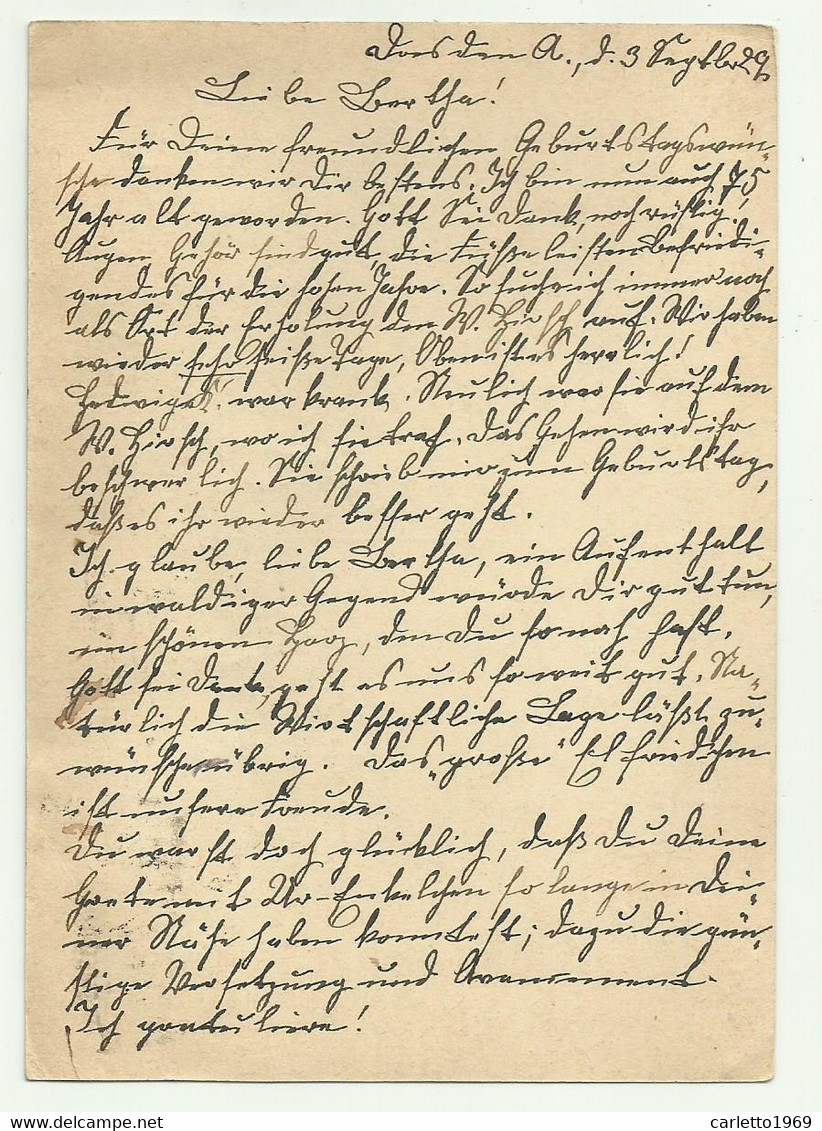 Dresden A., d. 3 Septbr 29.
Liebe Bertha!
Für Deine freundlichen Geburtstagswün-
sche danken wir Dir bestens. Ich bin nun auch 75
Jahr alt geworden. Gott sei Dank, noch rüstig!
Augen Gehör sind gut, die Füße leisten Befriedi-
gendes für die hohen Jahre. So suche ich immer noch
als Ort der Erholung den W. Hirsch auf. Wir haben
wieder sehr heiße Tage, Oben ist es herrlich!
Hedwig K. war krank. Neulich war sie auf dem
W. Hirsch, wo ich sie traf. Das Gehen wird ihr
beschwerlich. Sie schrieb mir zum Geburtstag,
daß es ihr wieder besser geht.
Ich glaube, liebe Bertha, ein Aufenthalt
in waldiger Gegend würde Dir gut tun,
im schönen Harz, den Du so nah hast.
Gott sei Dank, geht es uns soweit gut. Na-
türlich die Wirtschaftliche Lage läßt zu
wünschen übrig. Das "große" Elfriedchen
ist unsere Freude.
Du warst doch glücklich, daß Du Deine
Grete mit Ur-Enkelchen so lange in Dei-
ner Nähe haben konntest; dazu die gün-
stige Versetzung und Avancement.
Ich gratuliere!
carletto1969